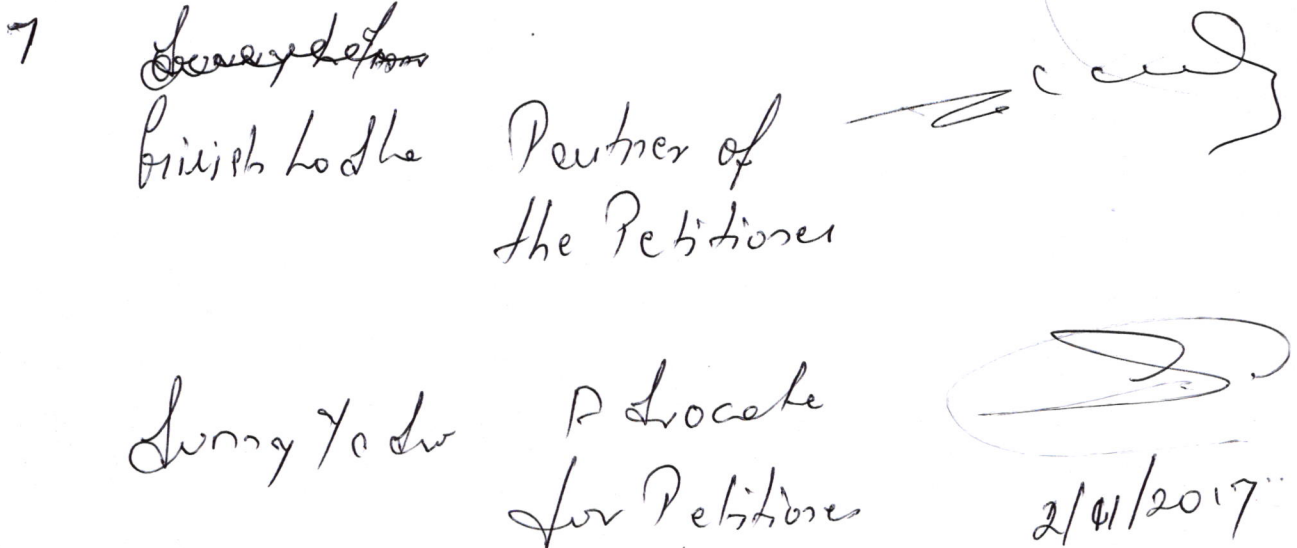 7
Girish Lodha Partner of
the Petitioner
Sunny Yadav Advocate
for Petitioner 2/11/2017